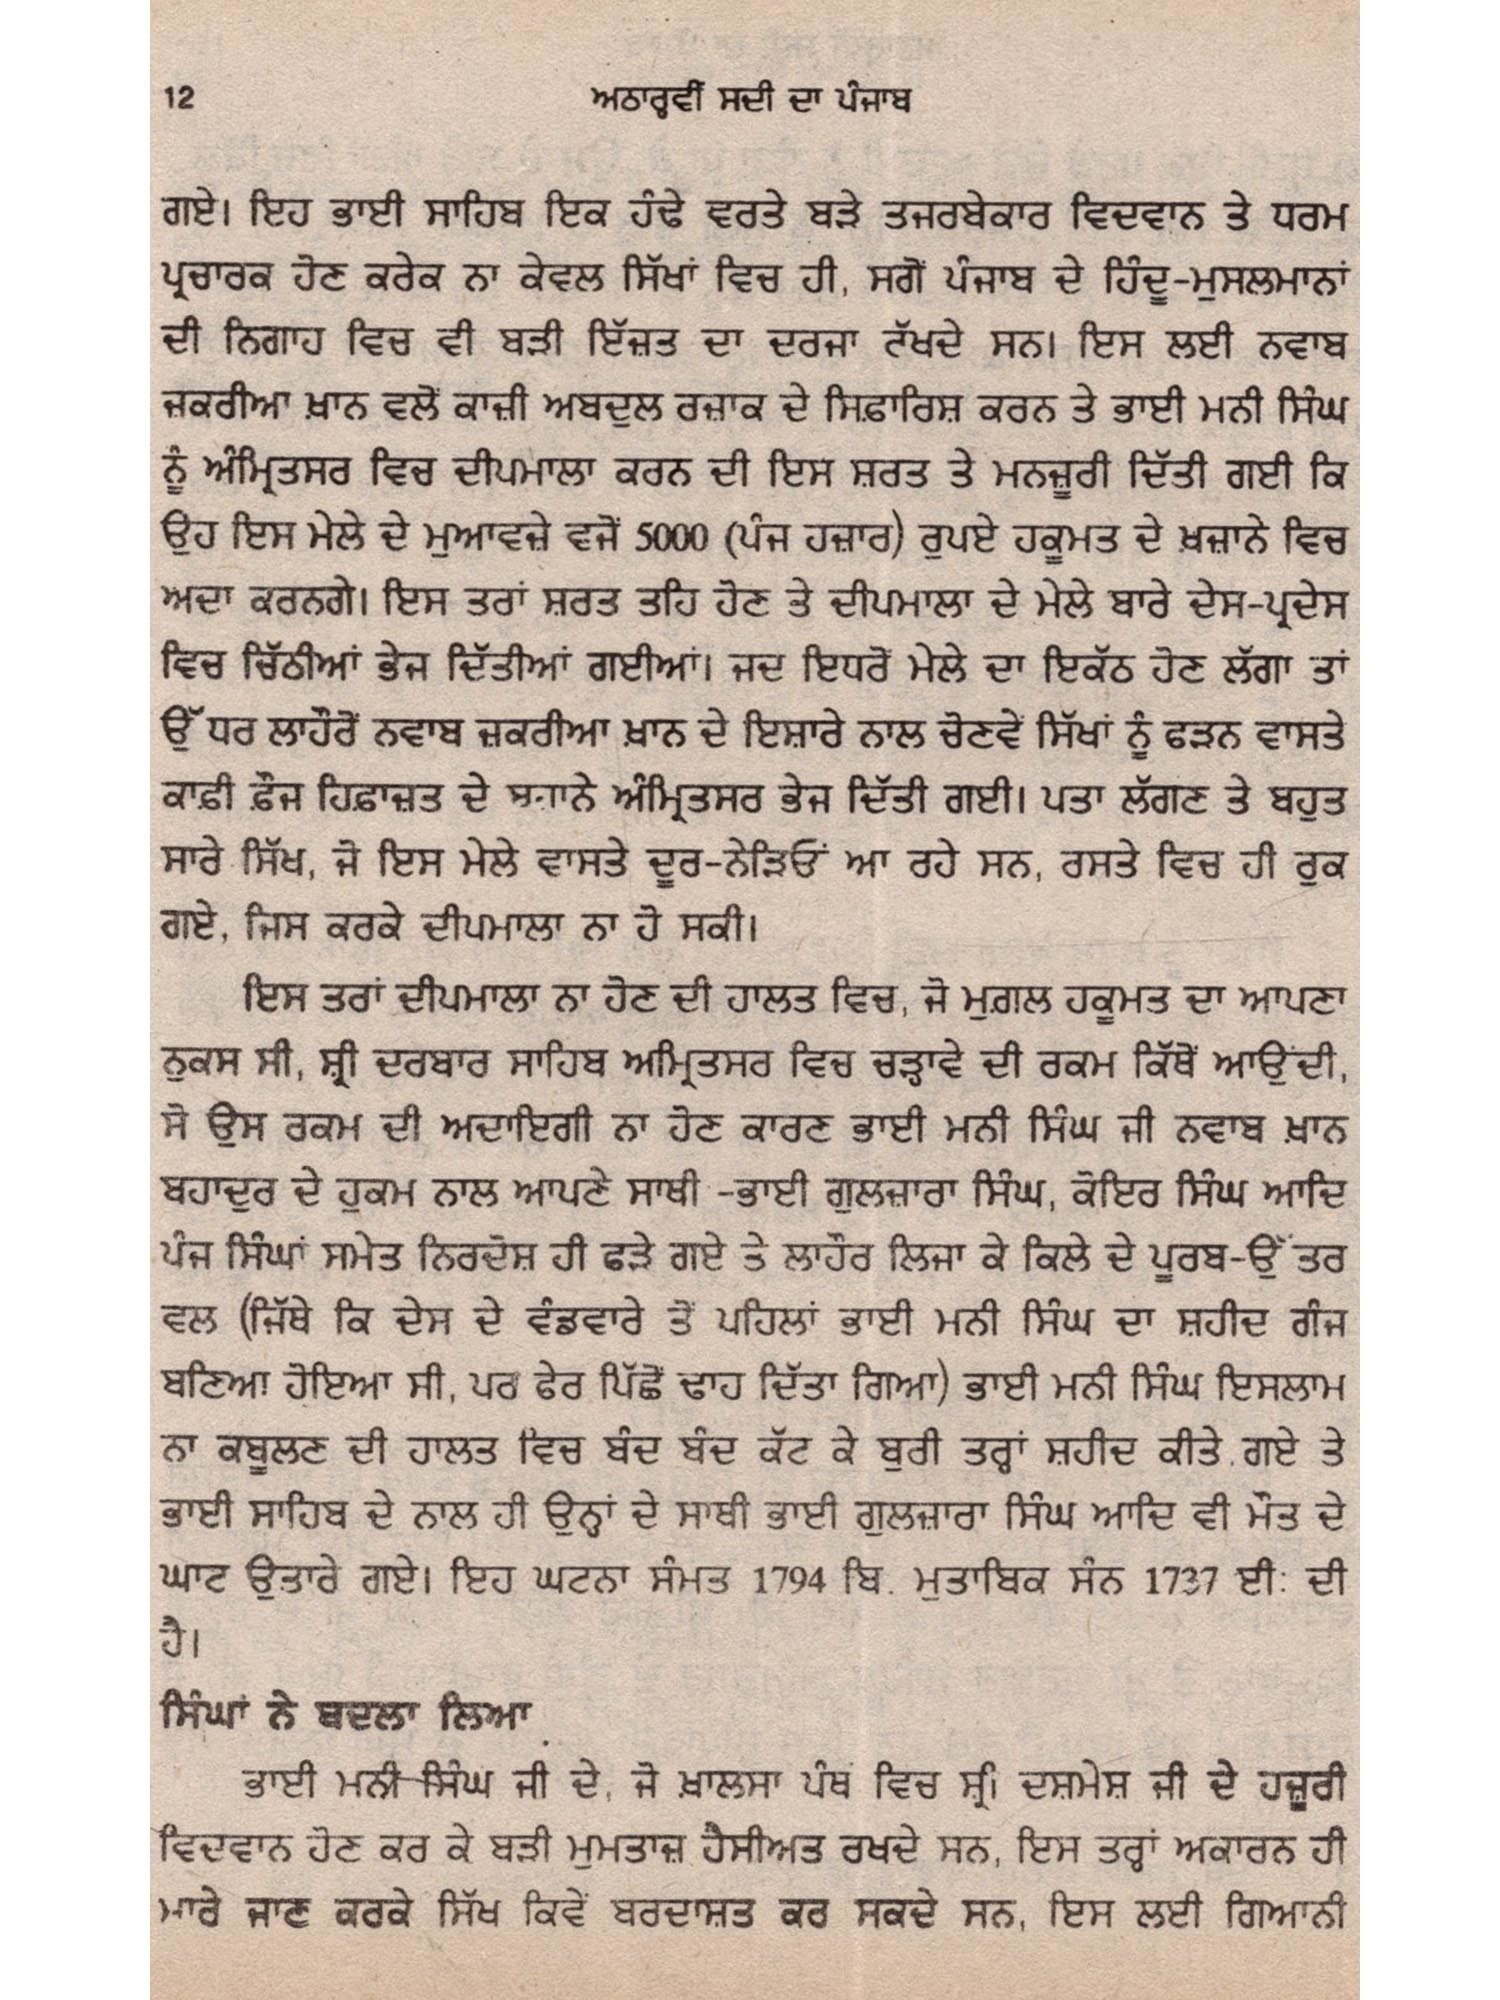 12
ਅਠਾਰ੍ਹਵੀਂ ਸਦੀ ਦਾ ਪੰਜਾਬ
ਗਏ। ਇਹ ਭਾਈ ਸਾਹਿਬ ਇਕ ਹੰਢੇ ਵਰਤੇ ਬੜੇ ਤਜਰਬੇਕਾਰ ਵਿਦਵਾਨ ਤੇ ਧਰਮ
ਪ੍ਰਚਾਰਕ ਹੋਣ ਕਰੇਕ ਨਾ ਕੇਵਲ ਸਿੱਖਾਂ ਵਿਚ ਹੀ, ਸਗੋਂ ਪੰਜਾਬ ਦੇ ਹਿੰਦੂ-ਮੁਸਲਮਾਨਾਂ
ਦੀ ਨਿਗਾਹ ਵਿਚ ਵੀ ਬੜੀ ਇੱਜ਼ਤ ਦਾ ਦਰਜਾ ਰੱਖਦੇ ਸਨ। ਇਸ ਲਈ ਨਵਾਬ
ਜ਼ਕਰੀਆ ਖ਼ਾਨ ਵਲੋਂ ਕਾਜ਼ੀ ਅਬਦੁਲ ਰਜ਼ਾਕ ਦੇ ਸਿਫ਼ਾਰਿਸ਼ ਕਰਨ ਤੇ ਭਾਈ ਮਨੀ ਸਿੰਘ
ਨੂੰ ਅੰਮ੍ਰਿਤਸਰ ਵਿਚ ਦੀਪਮਾਲਾ ਕਰਨ ਦੀ ਇਸ ਸ਼ਰਤ ਤੇ ਮਨਜ਼ੂਰੀ ਦਿੱਤੀ ਗਈ ਕਿ
ਉਹ ਇਸ ਮੇਲੇ ਦੇ ਮੁਆਵਜ਼ੇ ਵਜੋਂ 5000 (ਪੰਜ ਹਜ਼ਾਰ) ਰੁਪਏ ਹਕੂਮਤ ਦੇ ਖ਼ਜ਼ਾਨੇ ਵਿਚ
ਅਦਾ ਕਰਨਗੇ। ਇਸ ਤਰਾਂ ਸ਼ਰਤ ਤਹਿ ਹੋਣ ਤੇ ਦੀਪਮਾਲਾ ਦੇ ਮੇਲੇ ਬਾਰੇ ਦੇਸ-ਪ੍ਰਦੇਸ
ਵਿਚ ਚਿੱਠੀਆਂ ਭੇਜ ਦਿੱਤੀਆਂ ਗਈਆਂ। ਜਦ ਇਧਰੋਂ ਮੇਲੇ ਦਾ ਇਕੱਠ ਹੋਣ ਲੱਗਾ ਤਾਂ
ਉੱਧਰ ਲਾਹੌਰੋਂ ਨਵਾਬ ਜ਼ਕਰੀਆ ਖ਼ਾਨ ਦੇ ਇਸ਼ਾਰੇ ਨਾਲ ਚੋਣਵੇਂ ਸਿੱਖਾਂ ਨੂੰ ਫੜਨ ਵਾਸਤੇ
ਕਾਫ਼ੀ ਫ਼ੌਜ ਹਿਫ਼ਾਜ਼ਤ ਦੇ ਅੰਮ੍ਰਿਤਸਰ ਭੇਜ ਦਿੱਤੀ ਗਈ। ਪਤਾ ਲੱਗਣ ਤੇ ਬਹੁਤ
ਸਾਰੇ ਸਿੱਖ, ਜੋ ਇਸ ਮੇਲੇ ਵਾਸਤੇ ਦੂਰ-ਨੇੜਿਓਂ ਆ ਰਹੇ ਸਨ, ਰਸਤੇ ਵਿਚ ਹੀ ਰੁਕ
ਗਏ, ਜਿਸ ਕਰਕੇ ਦੀਪਮਾਲਾ ਨਾ ਹੋ ਸਕੀ।
ਇਸ ਤਰਾਂ ਦੀਪਮਾਲਾ ਨਾ ਹੋਣ ਦੀ ਹਾਲਤ ਵਿਚ, ਜੋ ਮੁਗ਼ਲ ਹਕੂਮਤ ਦਾ ਆਪਣਾ
ਨੁਕਸ ਸੀ, ਸ਼੍ਰੀ ਦਰਬਾਰ ਸਾਹਿਬ ਅਮ੍ਰਿਤਸਰ ਵਿਚ ਚੜ੍ਹਾਵੇ ਦੀ ਰਕਮ ਕਿੱਥੋਂ ਆਉਂਦੀ,
ਸੋ ਉਸ ਰਕਮ ਦੀ ਅਦਾਇਗੀ ਨਾ ਹੋਣ ਕਾਰਣ ਭਾਈ ਮਨੀ ਸਿੰਘ ਜੀ ਨਵਾਬ ਖ਼ਾਨ
ਬਹਾਦੁਰ ਦੇ ਹੁਕਮ ਨਾਲ ਆਪਣੇ ਸਾਥੀ -ਭਾਈ ਗੁਲਜ਼ਾਰਾ ਸਿੰਘ, ਕੋਇਰ ਸਿੰਘ ਆਦਿ
ਪੰਜ ਸਿੰਘਾਂ ਸਮੇਤ ਨਿਰਦੋਸ਼ ਹੀ ਫੜੇ ਗਏ ਤੇ ਲਾਹੌਰ ਲਿਜਾ ਕੇ ਕਿਲੇ ਦੇ ਪੂਰਬ-ਉੱਤਰ
ਵਲ (ਜਿੱਥੇ ਕਿ ਦੇਸ ਦੇ ਵੰਡਵਾਰੇ ਤੋਂ ਪਹਿਲਾਂ ਭਾਈ ਮਨੀ ਸਿੰਘ ਦਾ ਸ਼ਹੀਦ ਗੰਜ
ਬਣਿਆ ਹੋਇਆ ਸੀ, ਪਰ ਫੇਰ ਪਿੱਛੋਂ ਢਾਹ ਦਿੱਤਾ ਗਿਆ) ਭਾਈ ਮਨੀ ਸਿੰਘ ਇਸਲਾਮ
ਨਾ ਕਬੂਲਣ ਦੀ ਹਾਲਤ ਵਿਚ ਬੰਦ ਬੰਦ ਕੱਟ ਕੇ ਬੁਰੀ ਤਰ੍ਹਾਂ ਸ਼ਹੀਦ ਕੀਤੇ ਗਏ ਤੇ
ਭਾਈ ਸਾਹਿਬ ਦੇ ਨਾਲ ਹੀ ਉਨ੍ਹਾਂ ਦੇ ਸਾਥੀ ਭਾਈ ਗੁਲਜ਼ਾਰਾ ਸਿੰਘ ਆਦਿ ਵੀ ਮੌਤ ਦੇ
ਘਾਟ ਉਤਾਰੇ ਗਏ। ਇਹ ਘਟਨਾ ਸੰਮਤ 1794 ਬਿ. ਮੁਤਾਬਿਕ ਸੰਨ 1737 ਈ: ਦੀ
ਹੈ।
ਸਿੰਘਾਂ ਨੇ ਬਦਲਾ ਲਿਆ
ਭਾਈ ਮਨੀ ਸਿੰਘ ਜੀ ਦੇ, ਜੋ ਖ਼ਾਲਸਾ ਪੰਥ ਵਿਚ ਸ਼੍ਰੀ ਦਸ਼ਮੇਸ਼ ਜੀ ਦੇ ਹਜ਼ੂਰੀ
ਵਿਦਵਾਨ ਹੋਣ ਕਰ ਕੇ ਬੜੀ ਮੁਮਤਾਜ਼ ਹੈਸੀਅਤ ਰਖਦੇ ਸਨ, ਇਸ ਤਰ੍ਹਾਂ ਅਕਾਰਨ ਹੀ
ਮਾਰੇ ਜਾਣ ਕਰਕੇ ਸਿੱਖ ਕਿਵੇਂ ਬਰਦਾਸ਼ਤ ਕਰ ਸਕਦੇ ਸਨ, ਇਸ ਲਈ ਗਿਆਨੀ